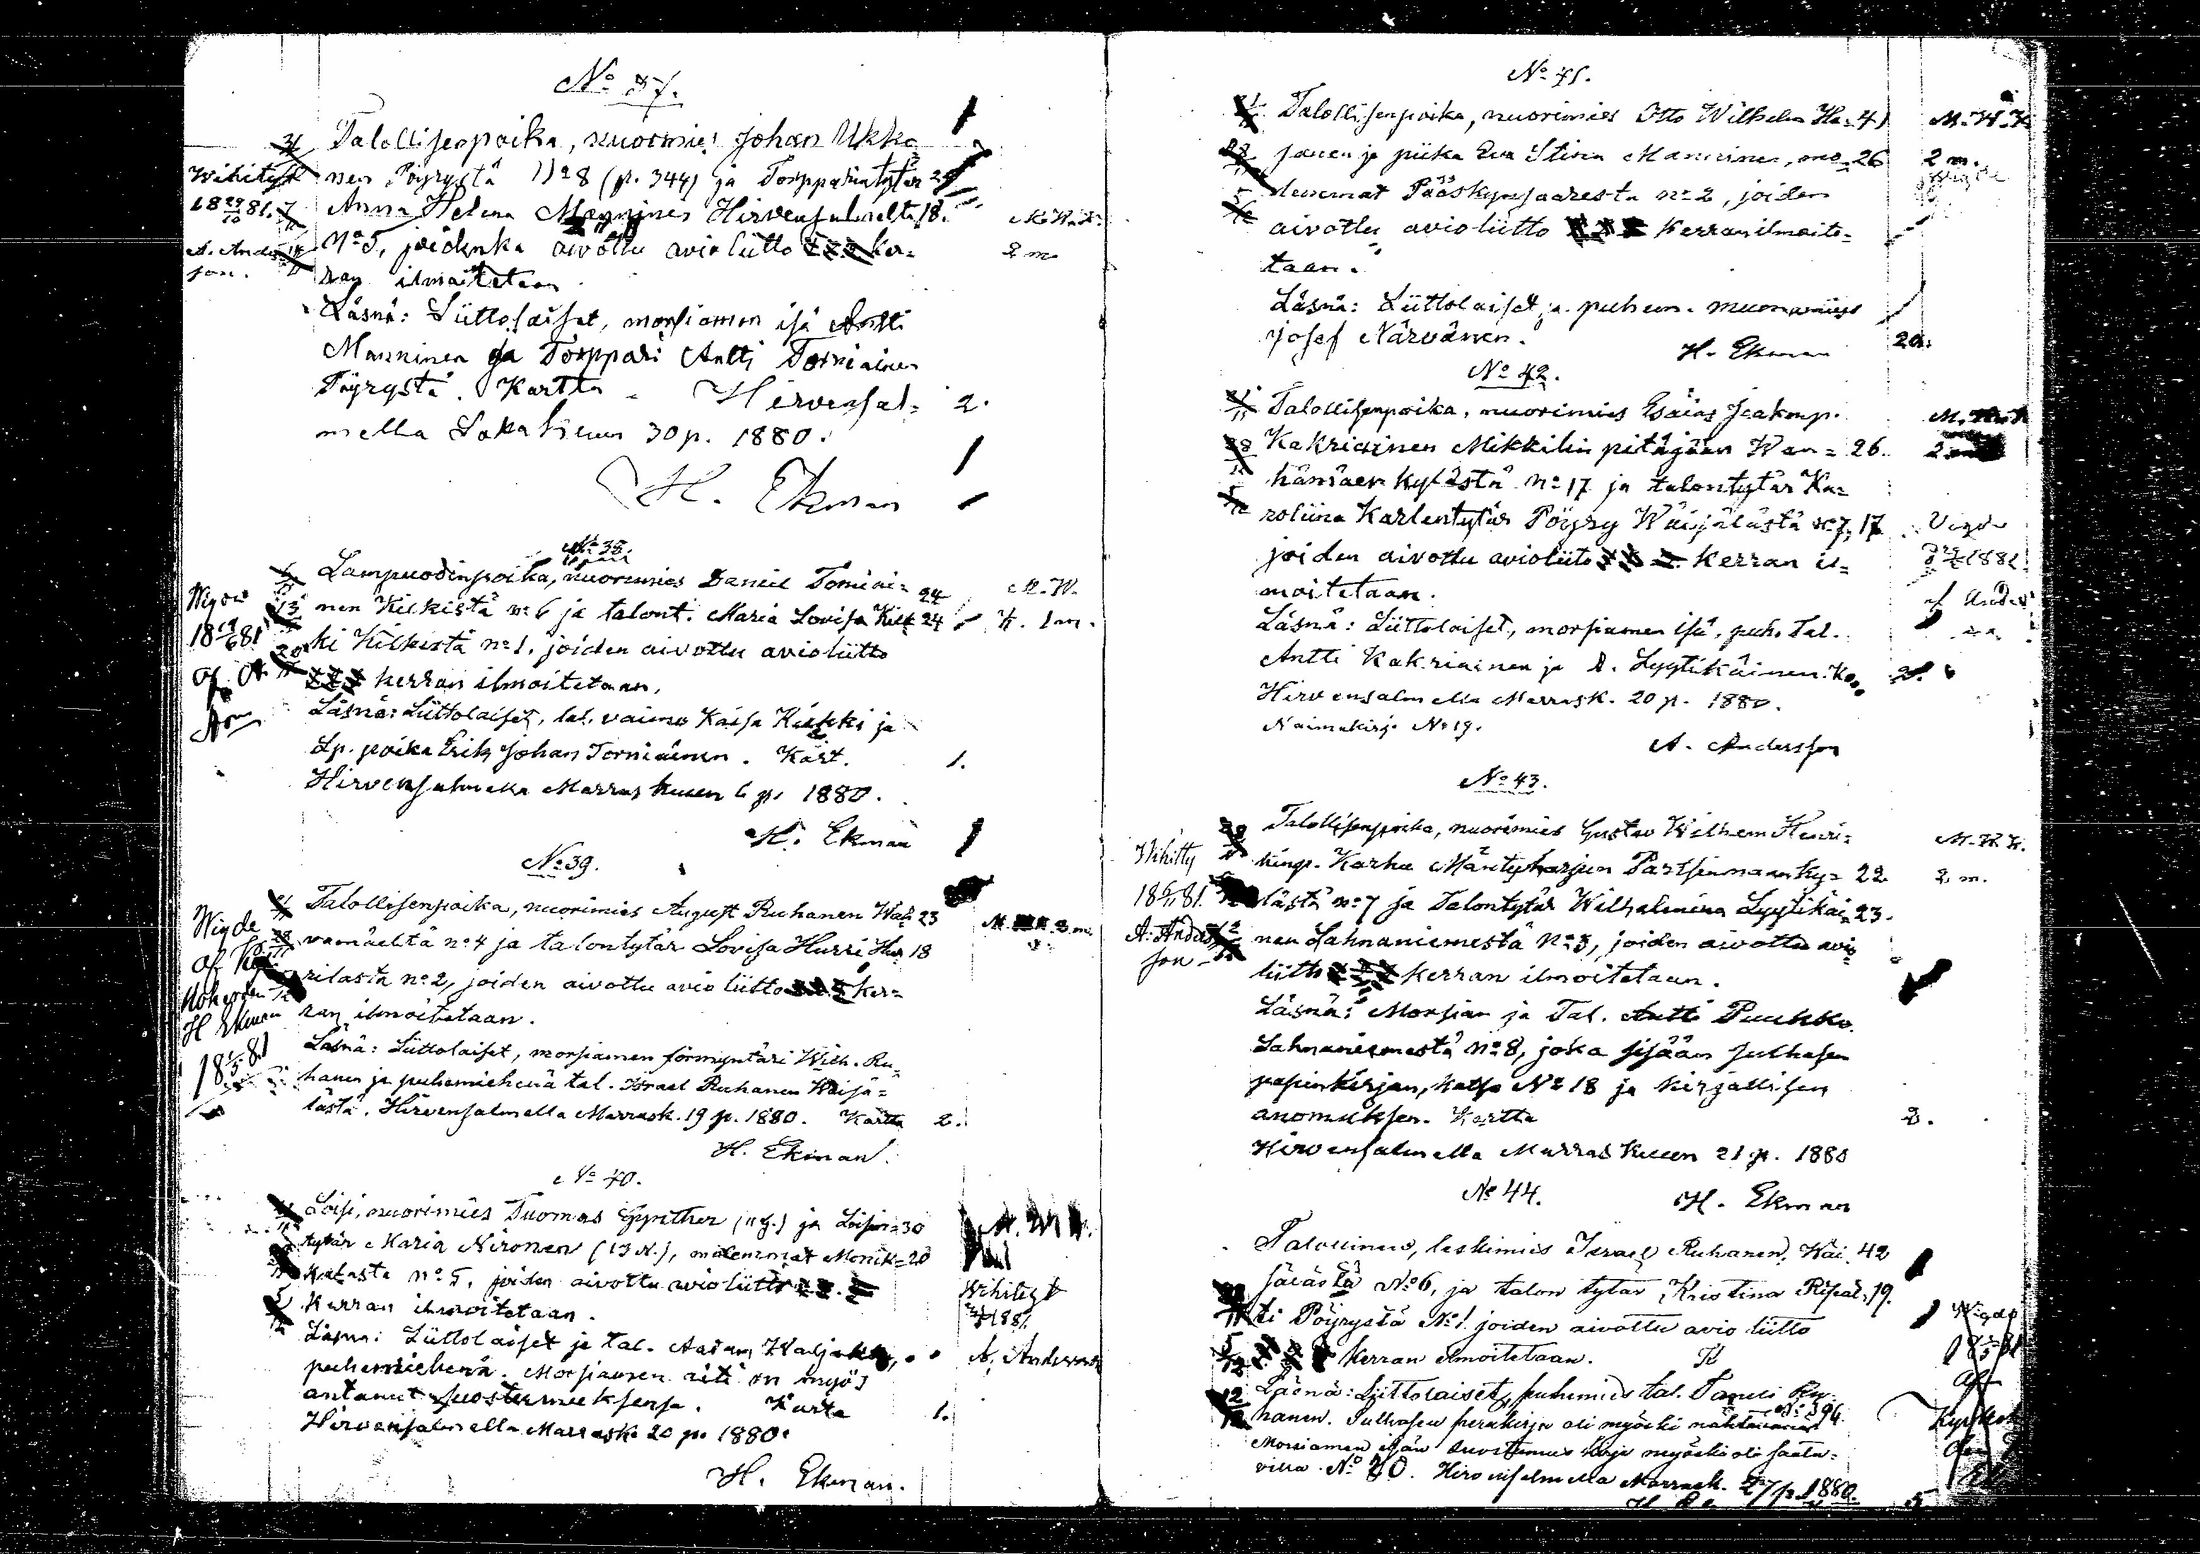 No 37.
Talollisenpoika, nuorimies Johan Ukko-
nen Pöyrystä No 8 (p. 344) ja Torpparintytär 24
Anna Helena Manninen Hirvensalmelta 18.
No 5, joidenka aivottu avioliitto ker-
ran ilmoitetaan
Läsnä: Liittolaiset, morsiamen isä Antti
Manninen ja Torppari Antti Torniainen
Pöyrystä. Kartta - Hirvensal- 2.
mella Lokakuun 30 p. 1880.
H. Ekman
Wihityt
18 81.
A. Anders-
son.
M. W. K.
2 m.
No 38.
Lampuodinpoika, nuorimies Daniel Torniai- 24
nen Kilkistä no 6 ja talont. Maria Lovisa Kilk- 24
ki Kilkistä no 1, joiden aivottu avioliitto
kerran ilmoitetaan.
Läsnä: Liittolaiset, tal. vaimo Kaisa Kilkki ja
Lp. poika Erik Johan Torniainen. Kart. 1.
Hirvensalmella Marraskuun 6 p. 1880.
H. Ekman
M. W.
K. 1 m.
No 39.
Talollisenpoika, nuorimies August Ruhanen Wah- 23
vamäeltä no 4 ja talontytär Lovisa Hurri Hur- 18
rilasta no 2, joiden aivottu avioliitto ker-
ran ilmoitetaan.
Läsnä: Liittolaiset, morsiamen förmyntäri Wilh. Ru-
hanen ja puhemiehenä tal. Israel Ruhanen Waisä-
lästä. Hirvensalmella Marrask. 19 p. 1880. Kartta 2.
H. Ekman.
Wigde
af
H Ekman
No 40.
Loisi, nuorimies Tuomas ja Loisin- 30
tytär Maria Nironen molemmat Monik- 20
kalasta no 5, joiden aivottu avioliitto
kerran ilmoitetaan.
Läsnä: Liittolaiset ja tal. Aatam
puhemiehenä. Morsiamen äiti on myös
antanut suostumuksensa. Karta 1.
Hirvensalmella Marrask. 20 p. 1880.
H. Ekman.
Wihityt
1881
A. Andersson
No 41.
Talollisenpoika, nuorimies Otto Wilhelm Ha- 41
janen ja piika Eva Stina Manninen, mo- 26
lemmat Pääskynsaaresta no 2, joiden
aivottu avioliitto kerran ilmoite-
taan.
Läsnä: Liittolaiset ja puhem. muonamies
Josef Närvänen.
H. Ekman 2a.
M. W. K
2 m.
No 42.
Talollisenpoika, nuorimies Esaias Jaakonp.
Kakriainen Mikkilin pitäjään Wan- 26.
hämäen kylästä no 17 ja talontytär Ka-
roliina Karlentytär Pöyry Wäisälästä no 7, 17
joiden aivottu avioliitto kerran il-
moitetaan.
Läsnä: Liittolaiset, morsiamen isä, puh. Tal.
Antti Kakriainen ja A. Lyytikäinen.
Hirvensalmella Marrask. 20 p. 1880.
Naimakirj. No 19.
A. Andersson
Vigde
1881
af Anders
No 43.
Talollisenpoika, nuorimies Gustav Wilhelm Henri-
kinp. Karhu Mäntyharjun Partsinmaan ky- 22
lästä no 7 ja Talontytär Wilhelmina Lyytikäi- 23.
nen Lahnaniemestä No 8, joiden aivottu avio-
liitto kerran ilmoitetaan.
Läsnä: Morsian ja Tal. Antti Puukko
Lahnaniemestä No 8, joka sisään sulhasen
papinkirjan, katso No 18 ja kirjallisen
anomuksen. Kartta 2.
Hirvensalmella Marraskuun 21 p. 1880
H. Ekman
Wihitty
18 81.
A. Anders-
son
M. W. K.
2 m.
No 44.
Talollinen, leskimies Israel Ruhanen, Wäi- 42
sälästä No 6, ja talon tytär Kristina Ripat- 19.
ti Pöyrystä No 1. joiden aivottu avio liitto
kerran ilmoitetaan.
Läsnä: Liittolaiset, puhemies tal. Taneli Ru-
hanen. Sulhasen perukirja oli myöski nähtävänä
Morsiamen isän suostumus kirja myöski oli saata-
villa No 20. Hirvensalmella Marrask. 27 p. 1880.
Wigde